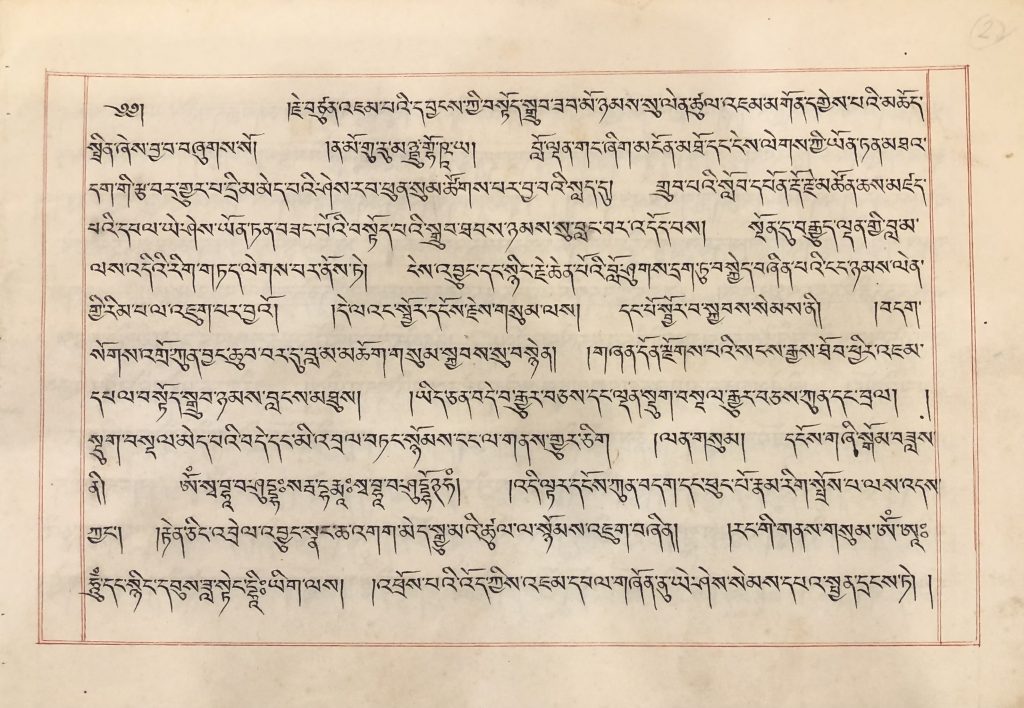 (22
༄༅།	།རྗེ་བཙུན་འཇམ་པའི་དབྱངས་ཀྱི་བསྟོད་སྒྲུབ་ཟབ་མོ་ཉམས་སུ་ལེན་ཚུལ་འཇམ་མགོན་དགྱེས་པའི་མཆོད་
སྤྲིན་ཞེས་བྱ་བ་བཞུགས་སོ། །ན་མོ་གུ་རུ་མཉྫུ་གྷོ་ཥཱ་ཡ། བློ་ལྡན་གང་ཞིག་མངོན་མཐོ་དང་ངེས་ལེགས་ཀྱི་ཡོན་ཏན་མཐའ་
དག་གི་རྩ་བར་གྱུར་པ་དྲི་མ་མེད་པའི་ཤེས་རབ་ཕུན་སུམ་ཚོགས་པར་བྱ་བའི་སླད་དུ། གྲུབ་པའི་སློབ་དཔོན་རྡོ་རྗེ་མཚོན་ཆས་མཛད་
པའི་དཔལ་ཡེ་ཤེས་ཡོན་ཏན་བཟང་པོའི་བསྟོད་པའི་སྒྲུབ་ཐབས་ཉམས་སུ་བླང་བར་འདོད་པས། སྔོན་དུ་བརྒྱུད་ལྡན་གྱི་བླ་མ་
ལས་འདིའི་རིག་གཏད་ལེགས་པར་ནོས་ཏེ། ངེས་འབྱུང་དང་སྙིང་རྗེ་ཆེན་པོའི་བློ་ཤུགས་དྲག་ཏུ་བསྐྱེད་བཞིན་པའི་ངང་ཉམས་ལེན་
གྱི་རིམ་པ་ལ་འཇུག་པར་བྱའོ། །དེ་ལའང་སྦྱོར་དངོས་རྗེས་གསུམ་ལས། དང་པོ་སྦྱོར་བ་སྐྱབས་སེམས་ནི། །བདག་
སོགས་འགྲོ་ཀུན་བྱང་ཆུབ་བར་དུ་བླ་མ་མཆོག་གསུམ་སྐྱབས་སུ་བསྙེན། །གཞན་དོན་རྫོགས་པའི་སངས་རྒྱས་ཐོབ་ཕྱིར་འཇམ་
དཔལ་བསྟོད་སྒྲུབ་ཉམས་བླངས་མཐུས། །ཡིད་ཅན་བདེ་བ་རྒྱུར་བཅས་དང་ལྡན་སྡུག་བསྔལ་རྒྱུར་བཅས་ཀུན་དང་བྲལ། །
སྡུག་བསྔལ་མེད་པའི་བདེ་དང་མི་འབྲལ་བཏང་སྙོམས་དང་ལ་གནས་གྱུར་ཅིག །ལན་གསུམ། དངོས་གཞི་སྒོམ་བཟླས་
ནི། ཨོཾ་སྭ་བྷཱ་བ་ཤུདྡྷཿསརྦ་དྷརྨཱཿསྭ་བྷཱ་བ་ཤུདྡྷོ྅ཧཾ། །འདི་ལྟར་དངོས་ཀུན་བདག་དང་ཕུང་པོ་རྣམ་རིག་སྤྲོས་པ་ལས་འདས་
ཀྱང་། །རྟེན་ཅིང་འབྲེལ་འབྱུང་སྣང་ཆ་འགག་མེད་སྒྱུ་མའི་ཚུལ་ལ་སྙོམས་འཇུག་བཞིན། །རང་གི་གནས་གསུམ་ཨོཾ་ཨཱཿ
ཧཱུྂ་དང་སྙིང་དབུས་ཟླ་སྟེང་དྷཱིཿཡིག་ལས། །འཕྲོས་པའི་འོད་ཀྱིས་འཇམ་དཔལ་གཞོན་ནུ་ཡེ་ཤེས་སེམས་དཔའ་སྤྱན་དྲངས་ཏེ། །